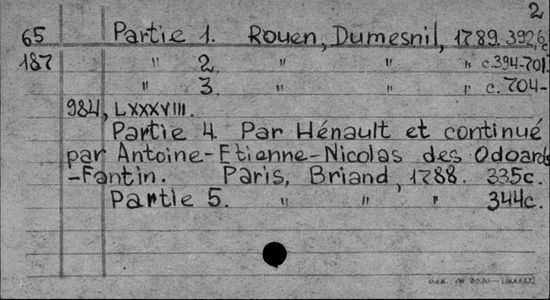 2
65 Partie 1. Rouen, Dumesnil, 1789. 392, 6c
187 " 2 " " " c. 394-701
" 3 " " " c. 704-
984, LXXXVIII.
Partie 4. Par Hénault et continué
par Antoine-Etienne-Nicolas des Odoards
-Fantin. Paris, Briand, 1788. 335c.
Partie 5. " " " 344c.